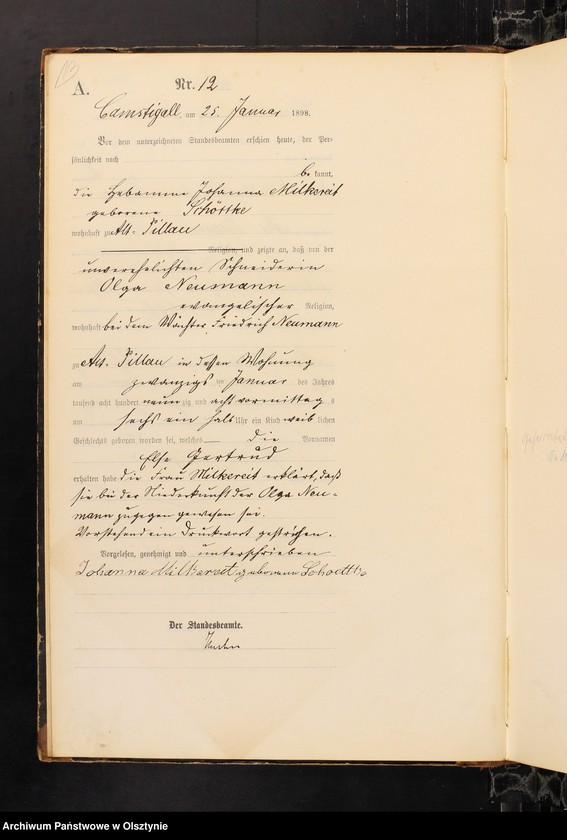 A.
Nr. 12
Camstigall, am 25. Januar 1898.
Vor dem unterzeichneten Standesbeamten erschien heute, der Per-
sönlichkeit nach
be kannt,
die Hebamme Johanna Milkereit
geborene Schöttke
wohnhaft zu Alt-Pillau
Religion, und zeigte an, daß von der
unverehelichten Schneiderin
Olga Neumann
evangelischer Religion,
wohnhaft bei dem Wächter Friedrich Neumann
zu Alt-Pillau in dessen Wohnung
am zwanzigs ten Januar des Jahres
tausend acht hundert neunzig und acht vormittags
um sechs ein halb Uhr ein Kind weiblichen
Geschlechts geboren worden sei, welches die Vornamen
Else Gertrud
erhalten habe die Frau Milkereit erklärt, daß
sie bei der Niederkunft der Olga Neu-
mann zugegen gewesen sei.
Vorstehend ein Druckwort gestrichen.
Vorgelesen, genehmigt und unterschrieben
Johanna Milkereit geborene Schoettke
Der Standesbeamte.
Archiwum Państwowe w Olsztynie